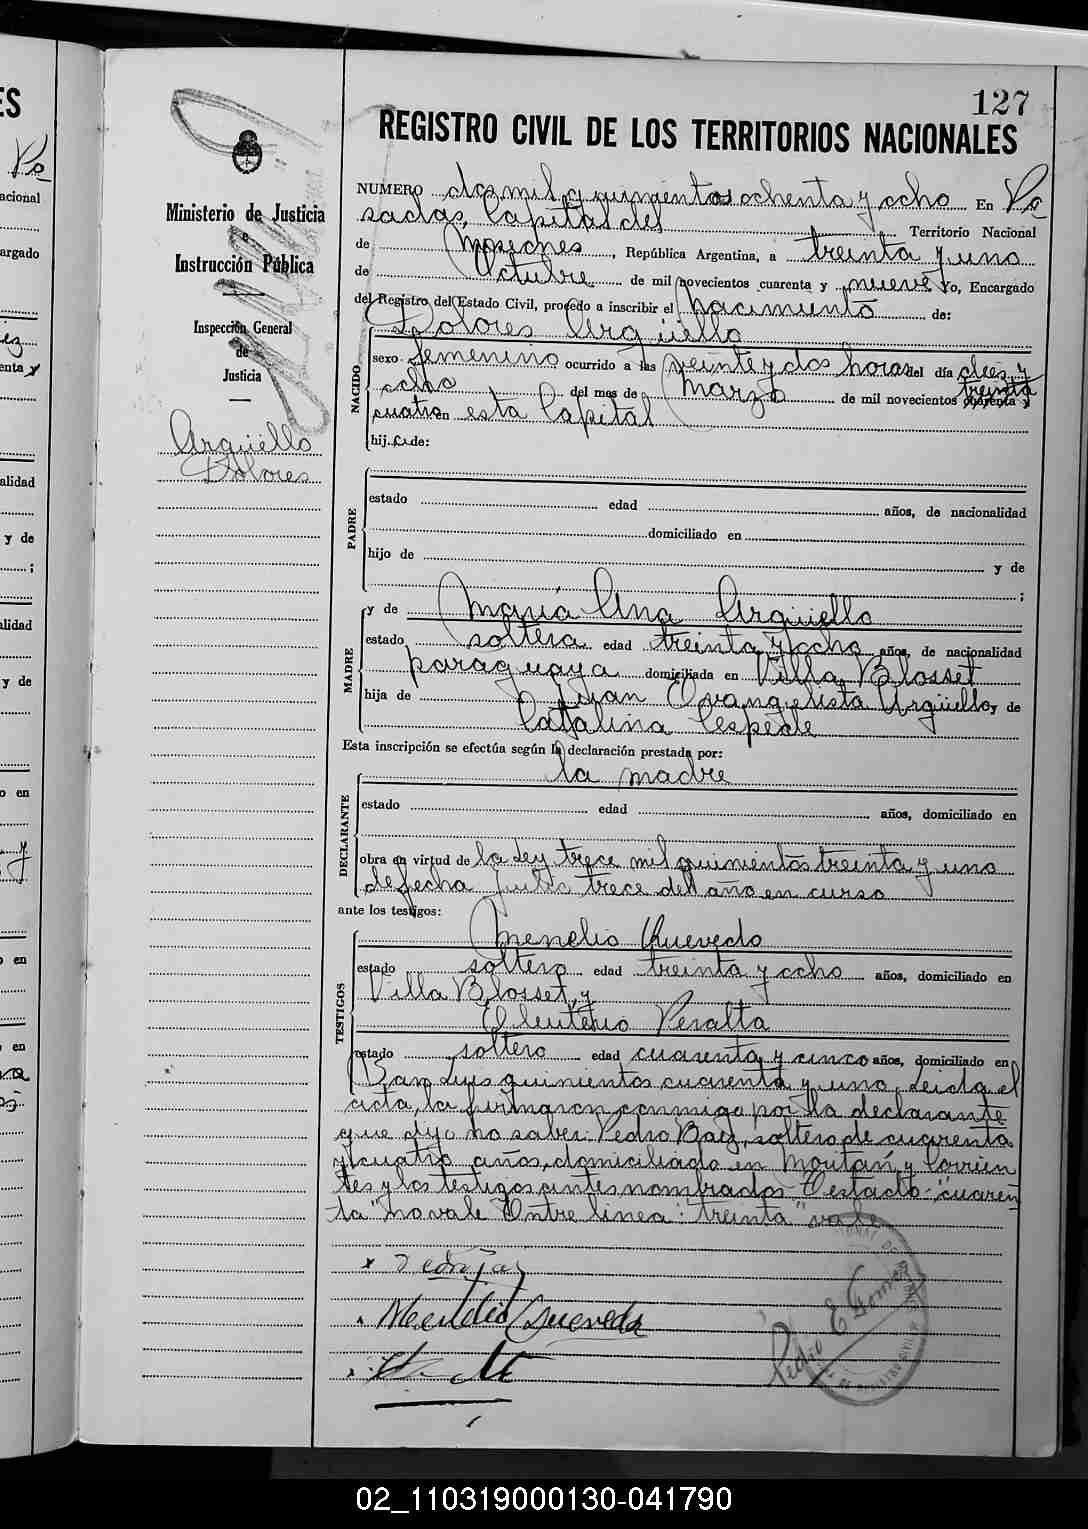 127
REGISTRO CIVIL DE LOS TERRITORIOS NACIONALES
Ministerio de Justicia
e
Instrucción Pública
Inspección General
de
Justicia
Argüello
Dolores
NUMERO dos mil quinientos ochenta y ocho En Po
sadas, Capital del Territorio Nacional
de Misiones, República Argentina, a treinta y uno
de Octubre de mil novecientos cuarenta y nueve Yo, Encargado
del Registro del Estado Civil, procedo a inscribir el nacimiento de:
NACIDO
Dolores Argüello
sexo femenino ocurrido a las veinte y dos horas del día diez y
ocho del mes de Marzo de mil novecientos cuarenta y treinta
cuatro en esta Capital
hija de:
PADRE
estado edad años, de nacionalidad
domiciliado en
hijo de y de
;
MADRE
y de María Ana Argüello
estado soltera edad treinta y ocho años, de nacionalidad
paraguaya domiciliada en Villa Blosset
hija de Juan Evangelista Argüello y de
Catalina Cespede
Esta inscripción se efectúa según la declaración prestada por:
DECLARANTE
la madre
estado edad años, domiciliado en
obra en virtud de la Ley trece mil quinientos treinta y uno
de fecha Julio trece del año en curso
ante los testigos:
TESTIGOS
Menelio Quevedo
estado soltero edad treinta y ocho años, domiciliado en
Villa Blosset, y
Eleuterio Peralta
estado soltero edad cuarenta y cinco años, domiciliado en
San Luis quinientos cuarenta y uno. Leida el
acta, la firmaron conmigo por la declarante
que dijo no saber: Pedro Baez, soltero de cuarenta
y cuatro años, domiciliado en Moritán y Corrien
tes y los testigos antes nombrados. Testado: "cuaren
ta" no vale Entre linea: "treinta" vale
Quevedo
Pedro E Gomez
02_110319000130-041790